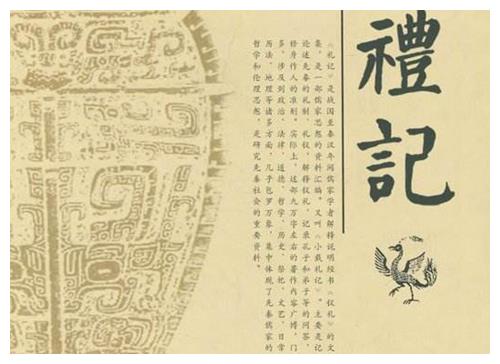 禮記
《礼记》是战国至秦汉年间儒家学者解释说明经书《仪礼》的文
集,是一部儒家思想的资料汇编。又叫《小戴礼记》。主要是记
论述先秦的礼制、礼仪,解释仪礼,记录孔子和弟子等的问答,
修身作人的准则。实际上,这部九万字左右的著作内容广博,门
多,涉及到政治、法律、道德、哲学、历史、祭祀、文艺、日常
历法、地理等诸多方面,几乎包罗万象,集中体现了先秦儒家的
哲学和伦理思想,是研究先秦社会的重要资料。